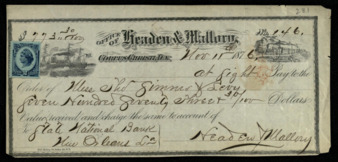 $773 50/100 OFFICE OF Headen & Mallory, No 146.
CORPUS CHRISTI, TEX. Nov 15 1876
At Sight Pay to the
Order of
Seven Hundred Seventy Three 50/100 Dollars
Value received and charge the same to account of
To State National Bank
New Orleans La Headen & Mallory